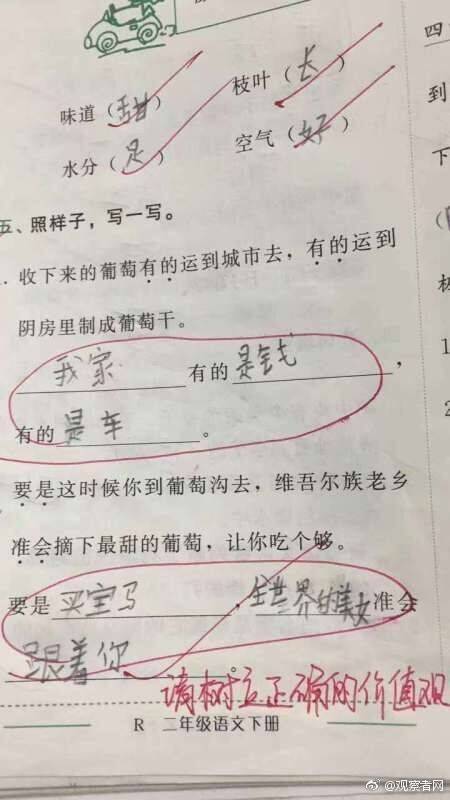 味道（甜）
枝叶（长）
水分（足）
空气（好）
五、照样子，写一写。
.收下来的葡萄有的运到城市去，有的运到
阴房里制成葡萄干。
我家有的是钱，
有的是车。
要是这时候你到葡萄沟去，维吾尔族老乡
准会摘下最甜的葡萄，让你吃个够。
要是买宝马，全世界的美女准会
跟着你。
请树立正确的价值观
R 二年级语文下册
四
到
下
1
2
@观察者网